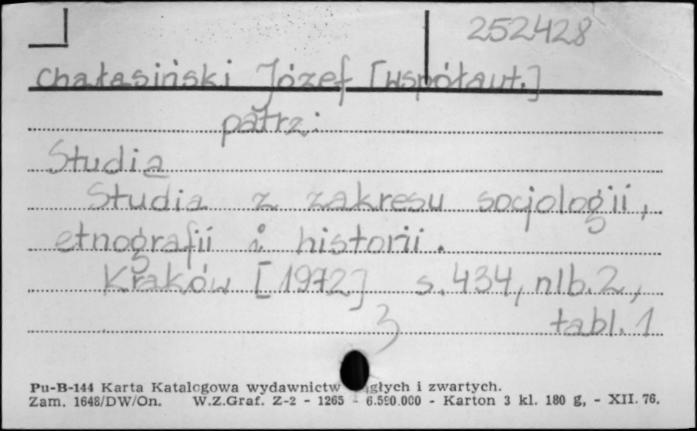 252428
Chałasiński Józef [współaut.]
patrz:
Studia
Studia z zakresu socjologii,
etnografii i historii.
Kraków [1972] s. 434, nlb. 2,
3 tabl. 1
Pu-B-144 Karta Katalogowa wydawnictw ciągłych i zwartych.
Zam. 1648/DW/On. W.Z.Graf. Z-2 - 1265 - 6.500.000 - Karton 3 kl. 180 g, - XII. 76.